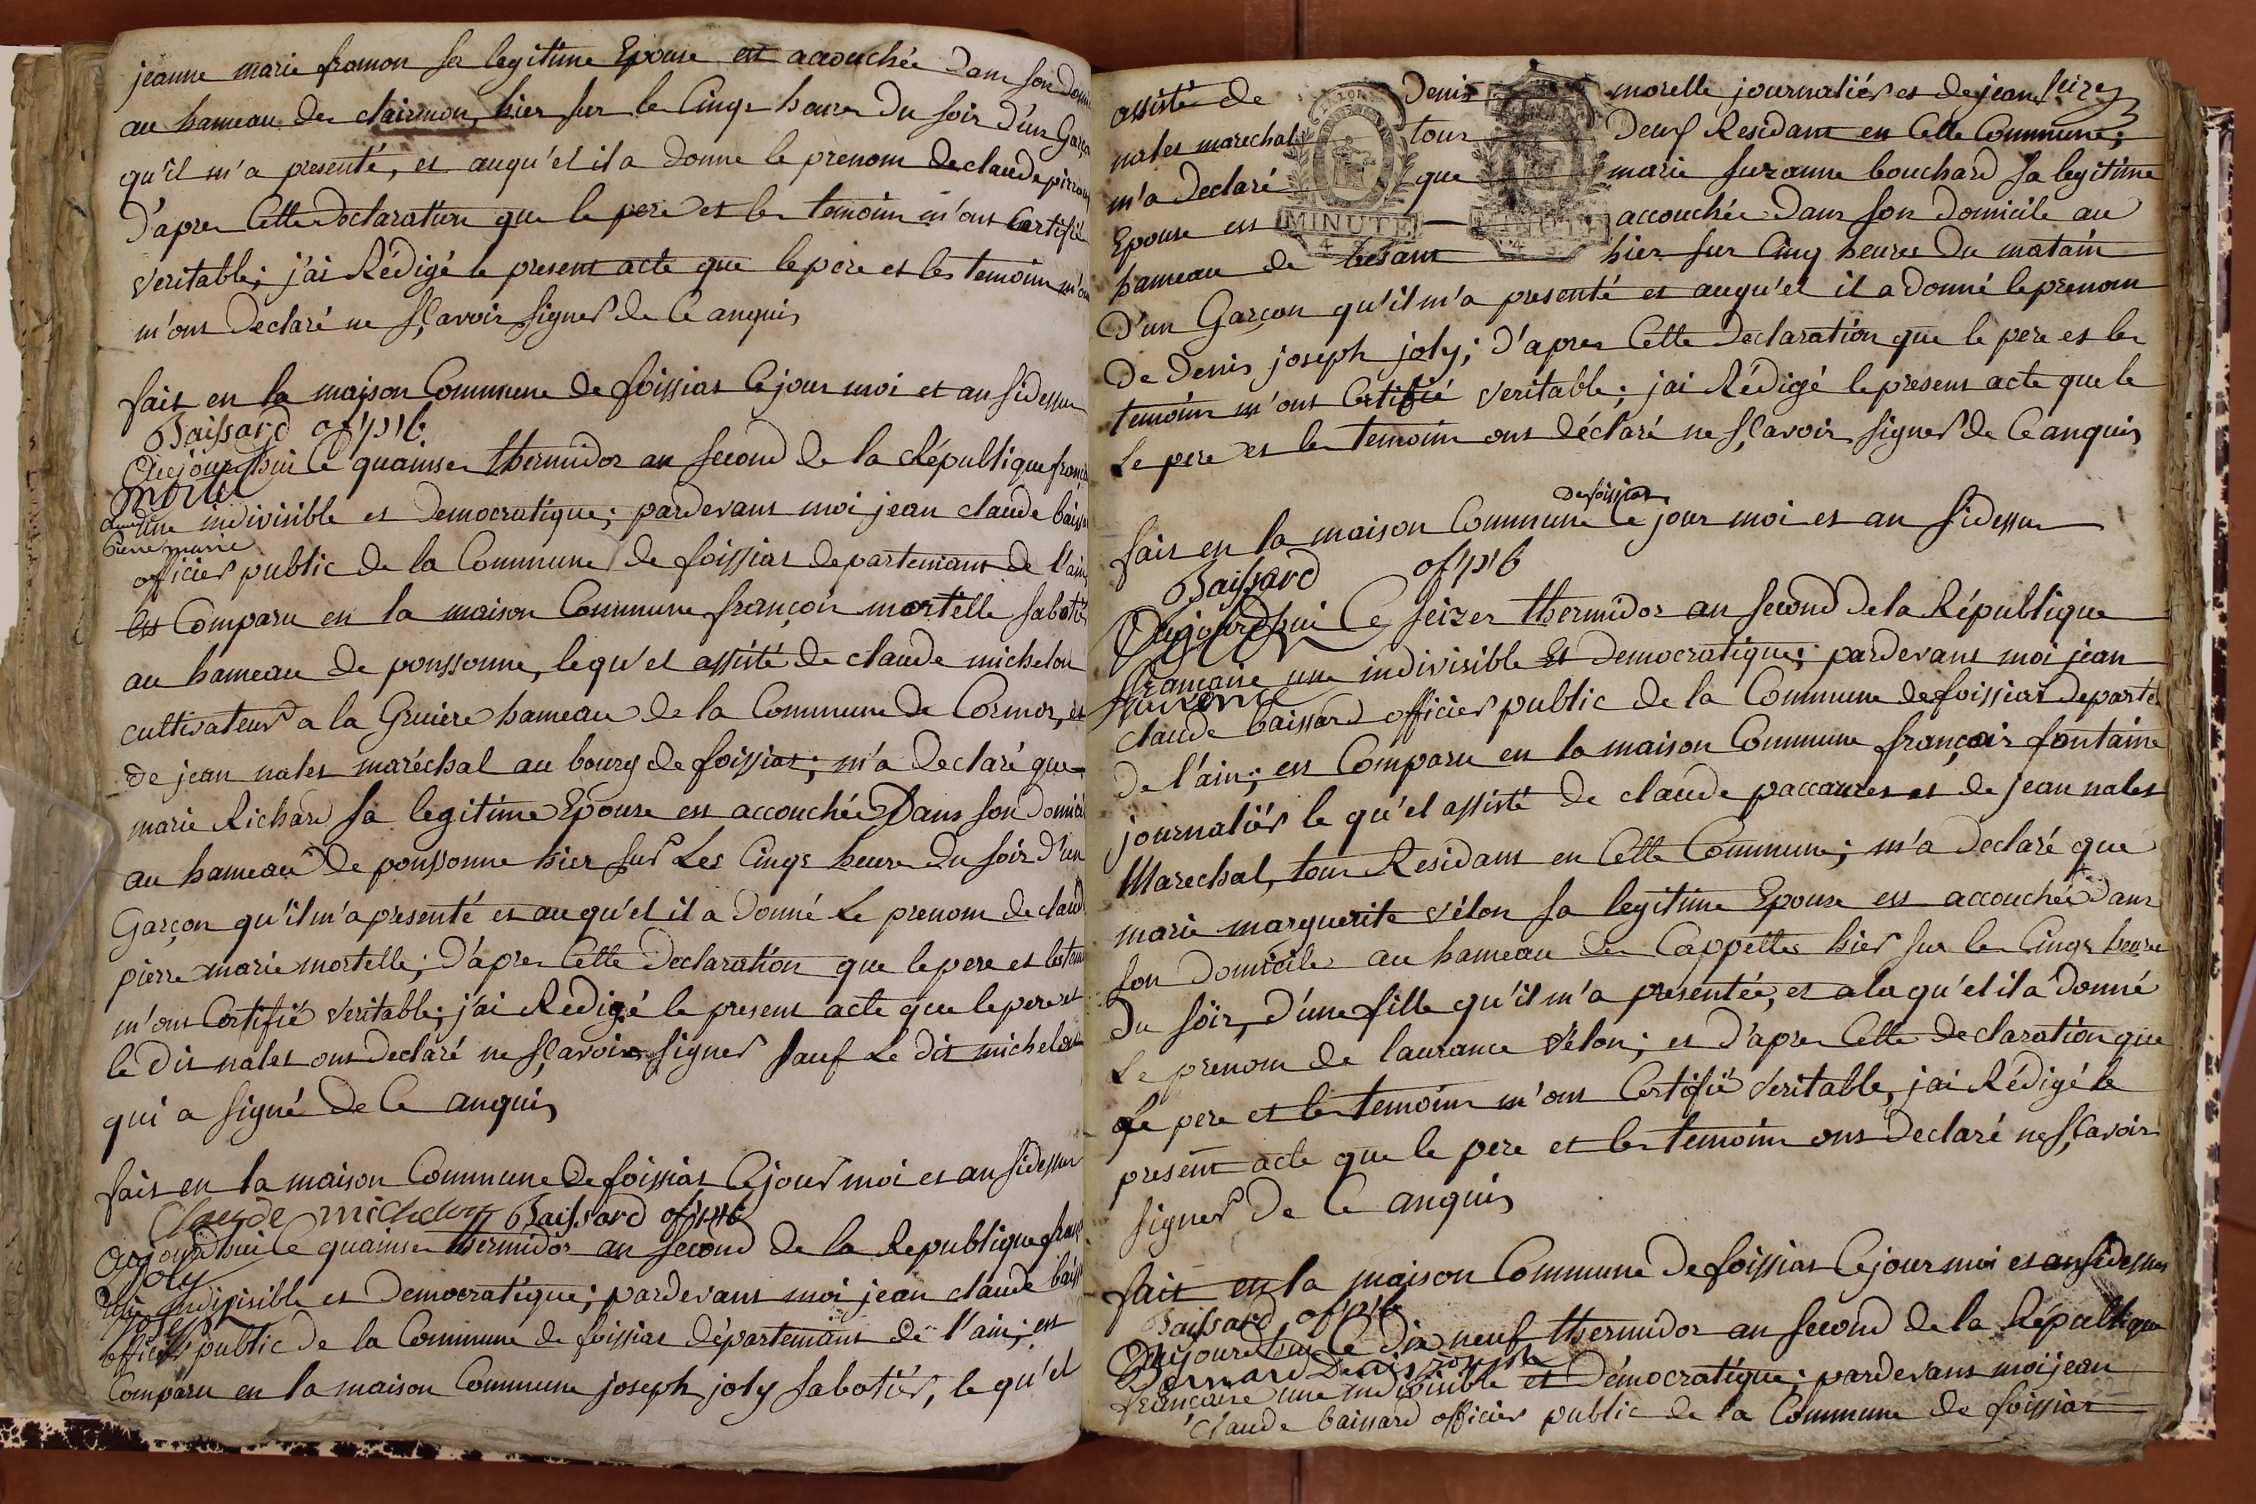 jeanne marie framon sa legitime Epouse est accouchée dans son dom
au hameau de clairmon, hier sur le Cinqs heure du soir d'un Garço
qu'il m'a presenté, et auqu'el il a donne le prenom de claude
d'apres Cette declaration que le pere et les temoins m'ont Certifié
veritable; j'ai Rédigé le present acte que le pere et les temoins m'on
m'ont declaré ne sçavoir signer de Ce anquis
fait en la maison Commune de foissiat Ce jour moi et an sidessus
Baissard of. pub
Aujourd'hui Ce quainse thermidor an second de la République franç
mortel
une indivisible et democratique; pardevant moi jean claude baissa
pierre marie
officier public de la Commune de foissiat departemant de l'ain
est Comparu en la maison Commune françois mortelle sabotié
au hameau de poussonne, lequ'el assisté de claude michelon
cultivateur a la Gruiere hameau de la Commune de Cormoz, et
de jean nalet maréchal au bourg de foissiat; m'a declaré que
marie Richard sa legitime Epouse est accouchée Dans son domici
au hameau de poussonne hier sur Les Cinqs heure du soir d'un
Garçon qu'il m'a presenté et auqu'el il a donné Le prenom de claud
pierre marie mortelle; d'apres Cette declaration que le pere et les tem
m'ont Certifié veritable; j'ai Redigé le present acte que le pere et
le dit nalet ont declaré ne sçavoir signer sauf Le dit michelon
qui a signé de Ce anquis
fait en la maison Commune de foissiat Ce jour moi et an sidessus
Claude michelon Baissard of. pub
Aujourd'hui Ce quainse thermidor an second de la Republique fran
joly
une indivisible et democratique; pardevant moi jean claude baiss
joseph
officier public de la Commune de foissiat départemant de l'ain; est
Comparu en la maison Commune joseph joly sabotiér, le qu'el
assisté de Denis morelle journaliér et de jean seize
nalet marechal tous deux Residant en Cette Commune;
m'a declaré que marie suzanne bouchard sa legitime
Epouse est accouchée dans son domicile au
MINUTE
MINUTE
hameau de besant hier sur Cinq heures du matain
d'un Garçon qu'il m'a presenté et auqu'el il a donné le prenom
de Denis joseph joly; d'apres Cette declaration que le pere et les
temoins m'ont Certifié veritable; jai Rédigé le present acte que le
Le pere et les temoins ont déclaré ne sçavoir signer de Ce anquis
de foissiat
fait en la maison Commune Ce jour moi et an sidessus
Baissard of. pub
Aujourd'hui Ce seizer thermidor an second de la République
française une indivisible Et democratique; pardevant moi jean
laurence
claude baissard officier public de la Commune de foissiat departe
de l'ain; est Comparu en la maison Commune françois fontaine
journaliér le qu'el assisté de claude paccaures et de jean nalet
Marechal, tous Residant en Cette Commune; m'a declaré que
marie marguerite vélon sa legitime Epouse est accouchée dans
son domicile au hameau des Cappettes hier sur les Cinqs heure
du soir, d'une fille qu'il m'a presentée, et a laqu'el il a donné
Le prenom de laurance vélon; et d'apres Cette declaration que
Le pere et les temoins m'ont Certifié veritable, jai Rédigé le
present acte que le pere et les temoins ont declaré ne sçavoir
signer de Ce anquis
fait en la maison Commune de foissiat Ce jour moi et an sidessus
Baissard of. pub
Aujourd'huy Ce dix neuf thermidor an second de la République
Bernard Denis
française une indivisible et démocratique; pardevant moi jean
claude baissard officier public de la Commune de foissiat